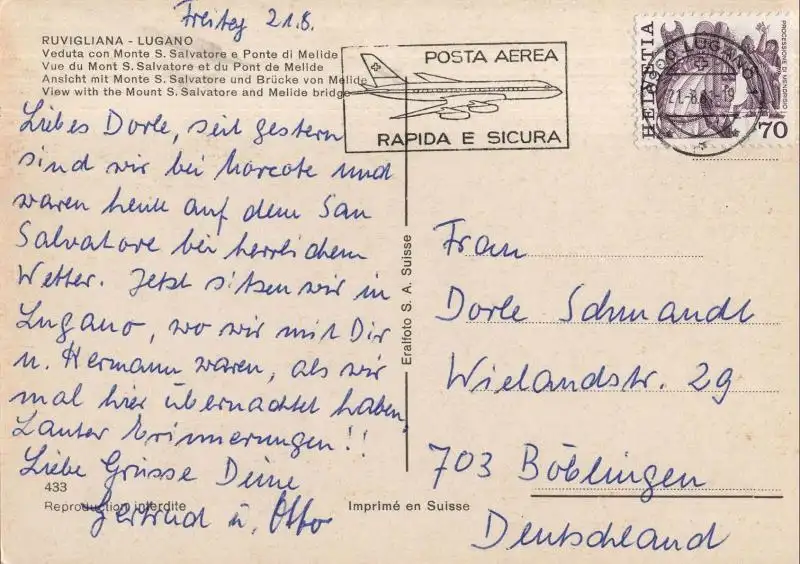 Freitag 21.8.
RUVIGLIANA - LUGANO
Veduta con Monte S. Salvatore e Ponte di Melide
Vue du Mont S. Salvatore et du Pont de Melide
Ansicht mit Monte S. Salvatore und Brücke von Melide
View with the Mount S. Salvatore and Melide bridge
POSTA AEREA
RAPIDA E SICURA
HELVETIA
PROCESSIONE DI MENDRISIO
70
LUGANO
21.-8.81-19
Liebes Dorle, seit gestern
sind wir bei Morcote und
waren heute auf dem San
Salvatore bei herrlichem
Wetter. Jetzt sitzen wir in
Lugano, wo wir mit Dir
u. Hermann waren, als wir
mal hier übernachtet haben.
Lauter Erinnerungen!!
Liebe Grüsse Deine
Gertrud u. Otto
433
Reproduction interdite
Imprimé en Suisse
Eralfoto S. A. Suisse
Frau
Dorle Schmandt
Wielandstr. 29
703 Böblingen
Deutschland